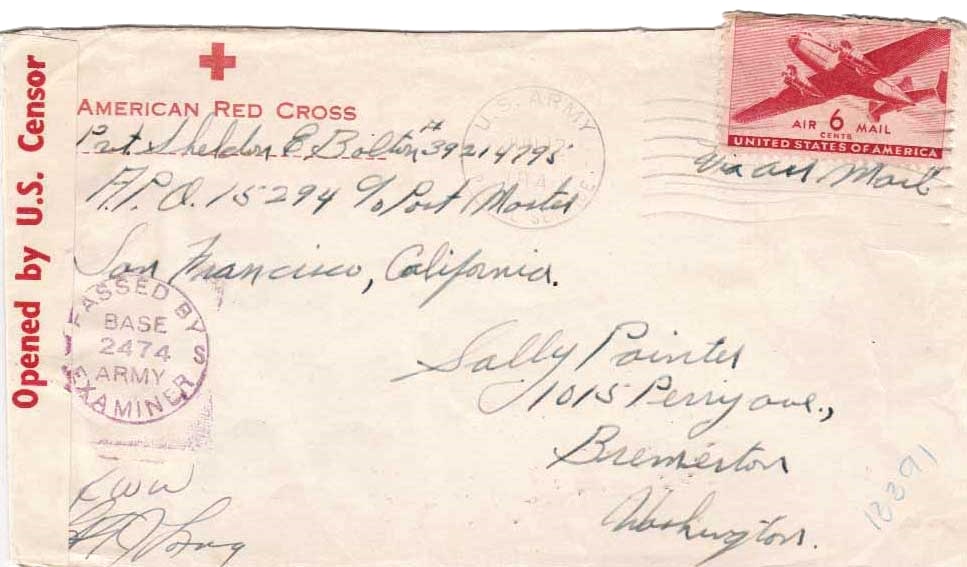 Opened by U.S. Censor
AMERICAN RED CROSS
Pvt. Sheldon E Bolton # 39214795
A.P.O. 15294 c/o Post Master
San Francisco, California.
U.S. ARMY
AIR 6 MAIL
CENTS
UNITED STATES OF AMERICA
Via air Mail
PASSED BY
BASE
2474
ARMY
EXAMINER S
Sally Pointer
1015 Perry ave.,
Bremerton
Washington.
12391